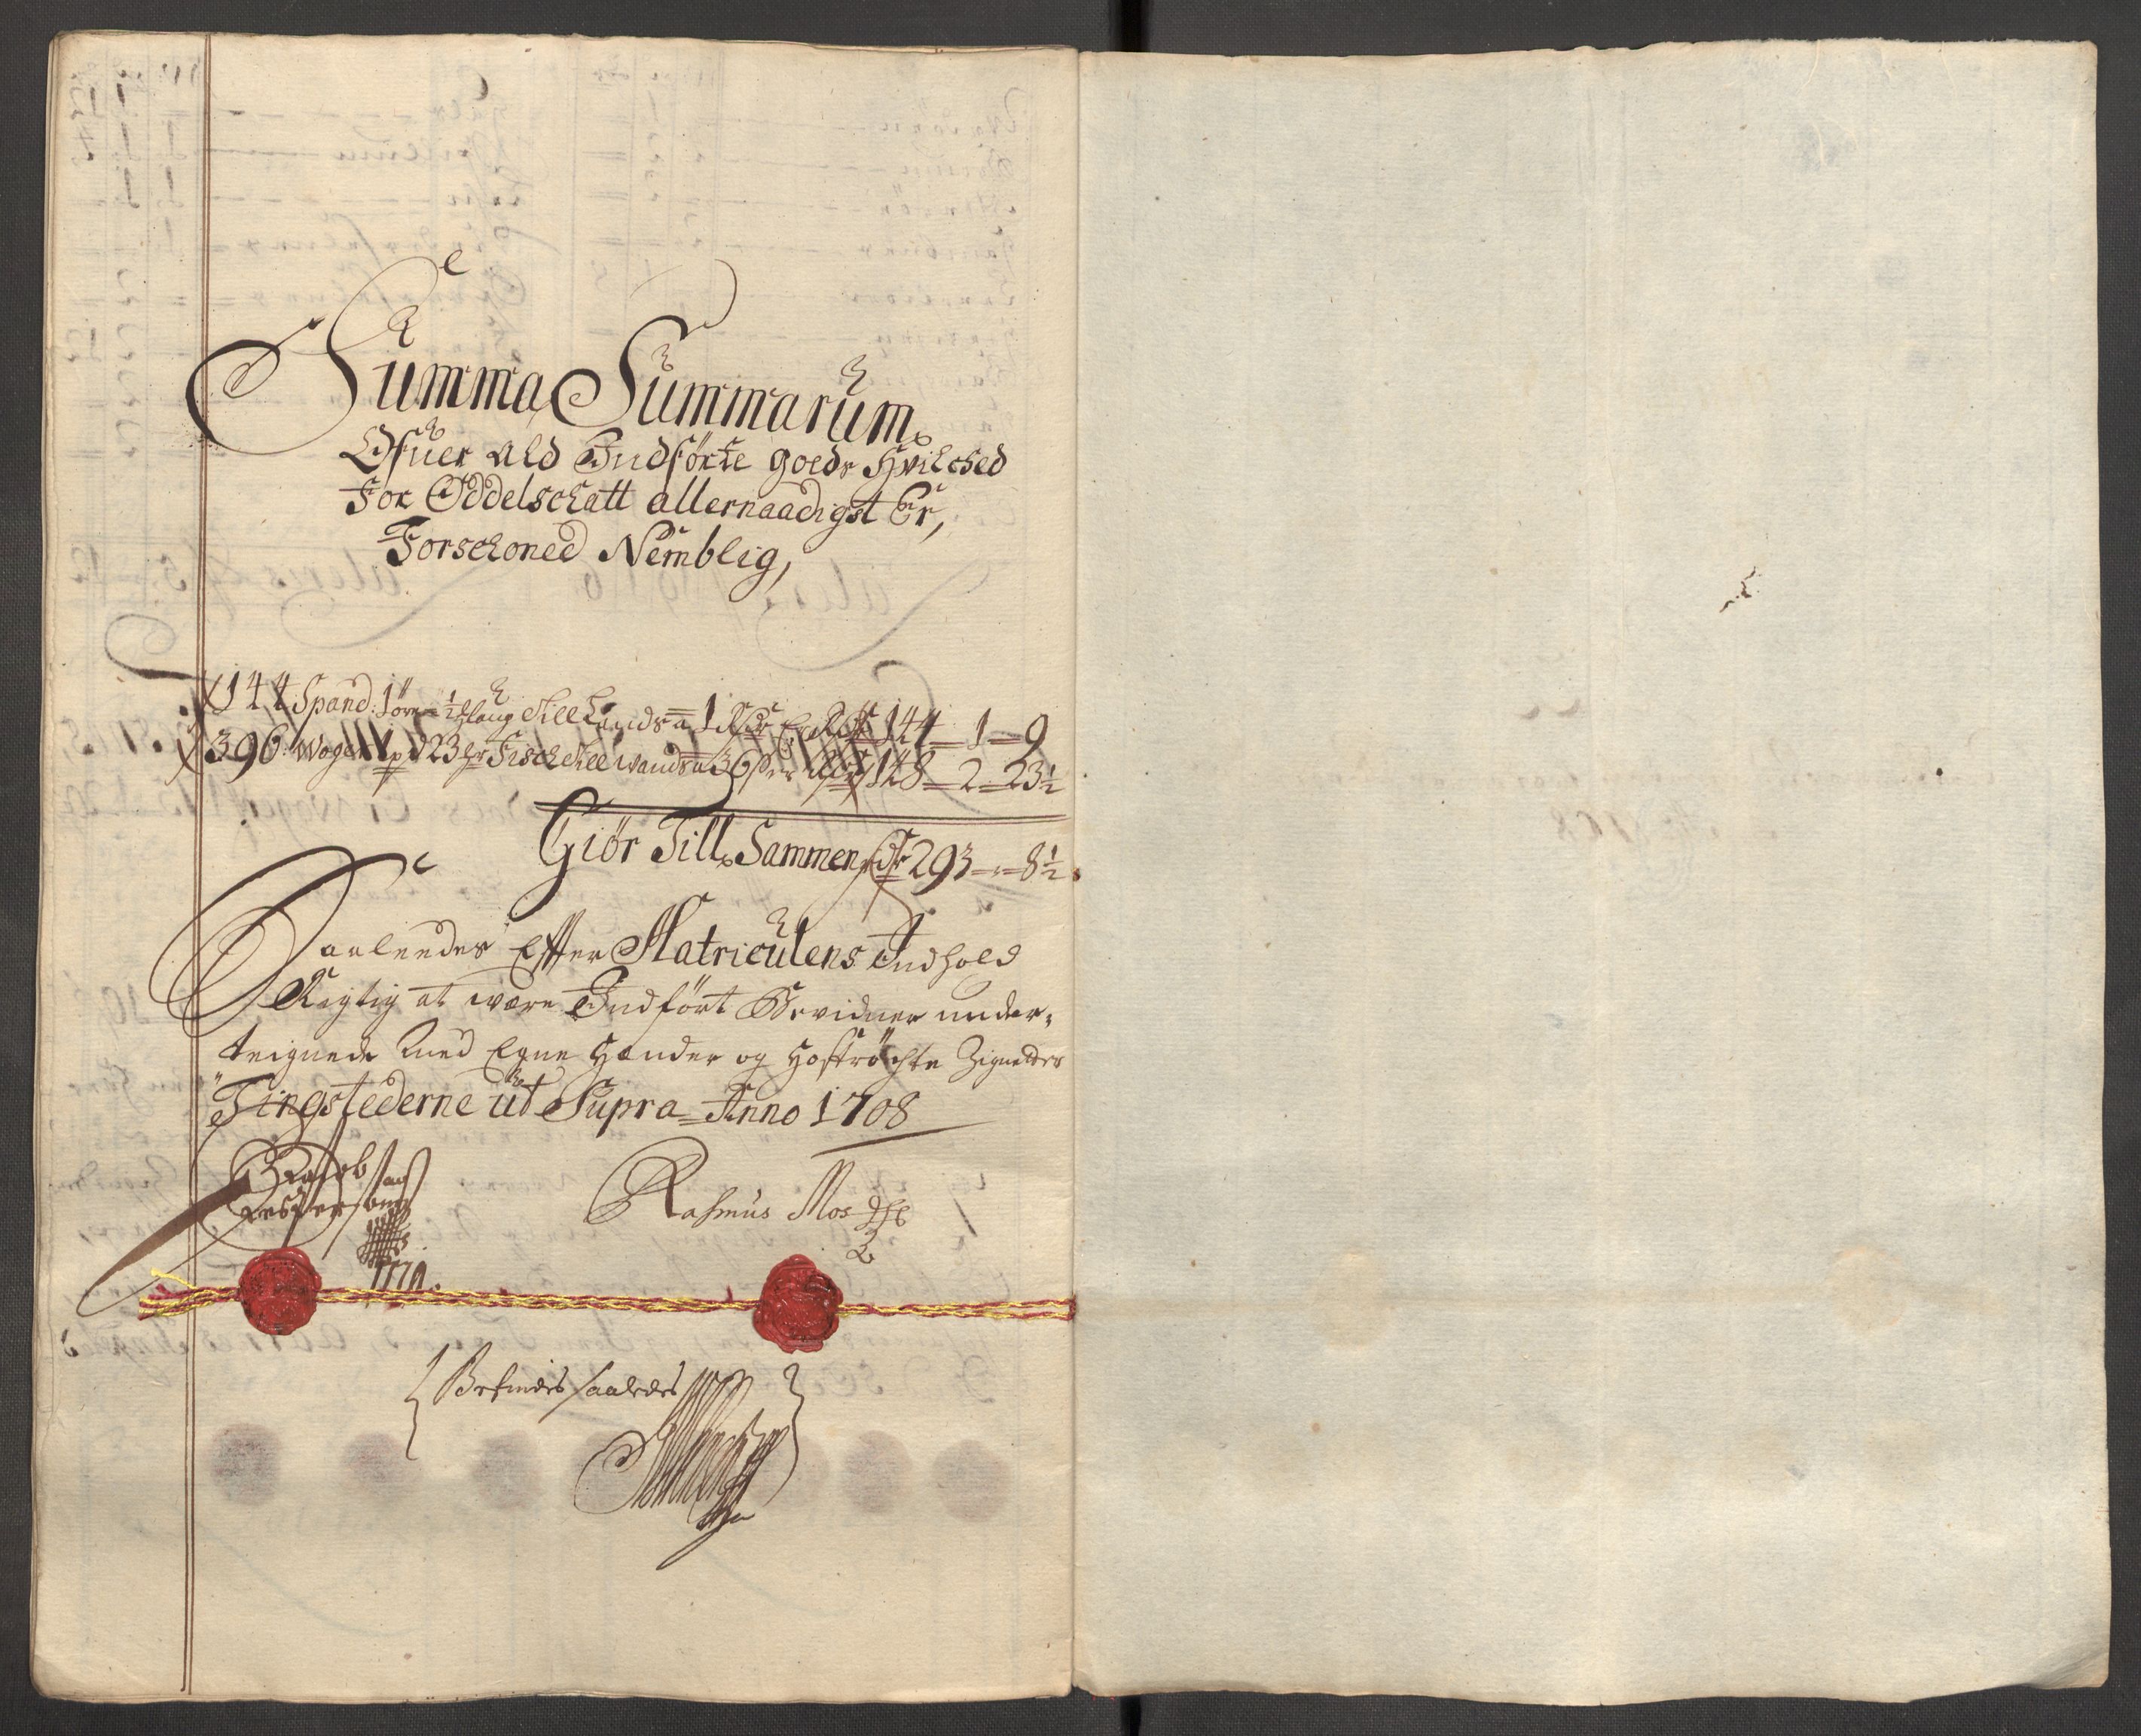 Summa Summarum
Ofuer ald Indförte goeds Hvilched
For Oddelschatt allernaadigst Er,
Forschoned Nemblig,
144 Spand 1 öre ½ Klaug Till Lands a 1 Rdr Er Rdr 144 - 1 - 9
396: Woger 1 pd 23 Fisch Till wands a 36 s er Rdr 148 - 2 - 23½
Giör Till Sammen Rdr 293 - " - 8½
Saaleedes Effter Matriculens Indhold
Rigtig at være Indfört Bevidner under-
teignede med Egne Hænder og Hoströchte Zigneter
Tingstederne ut Supra Anno 1708
Rasmus Mos
Befindes saaledes